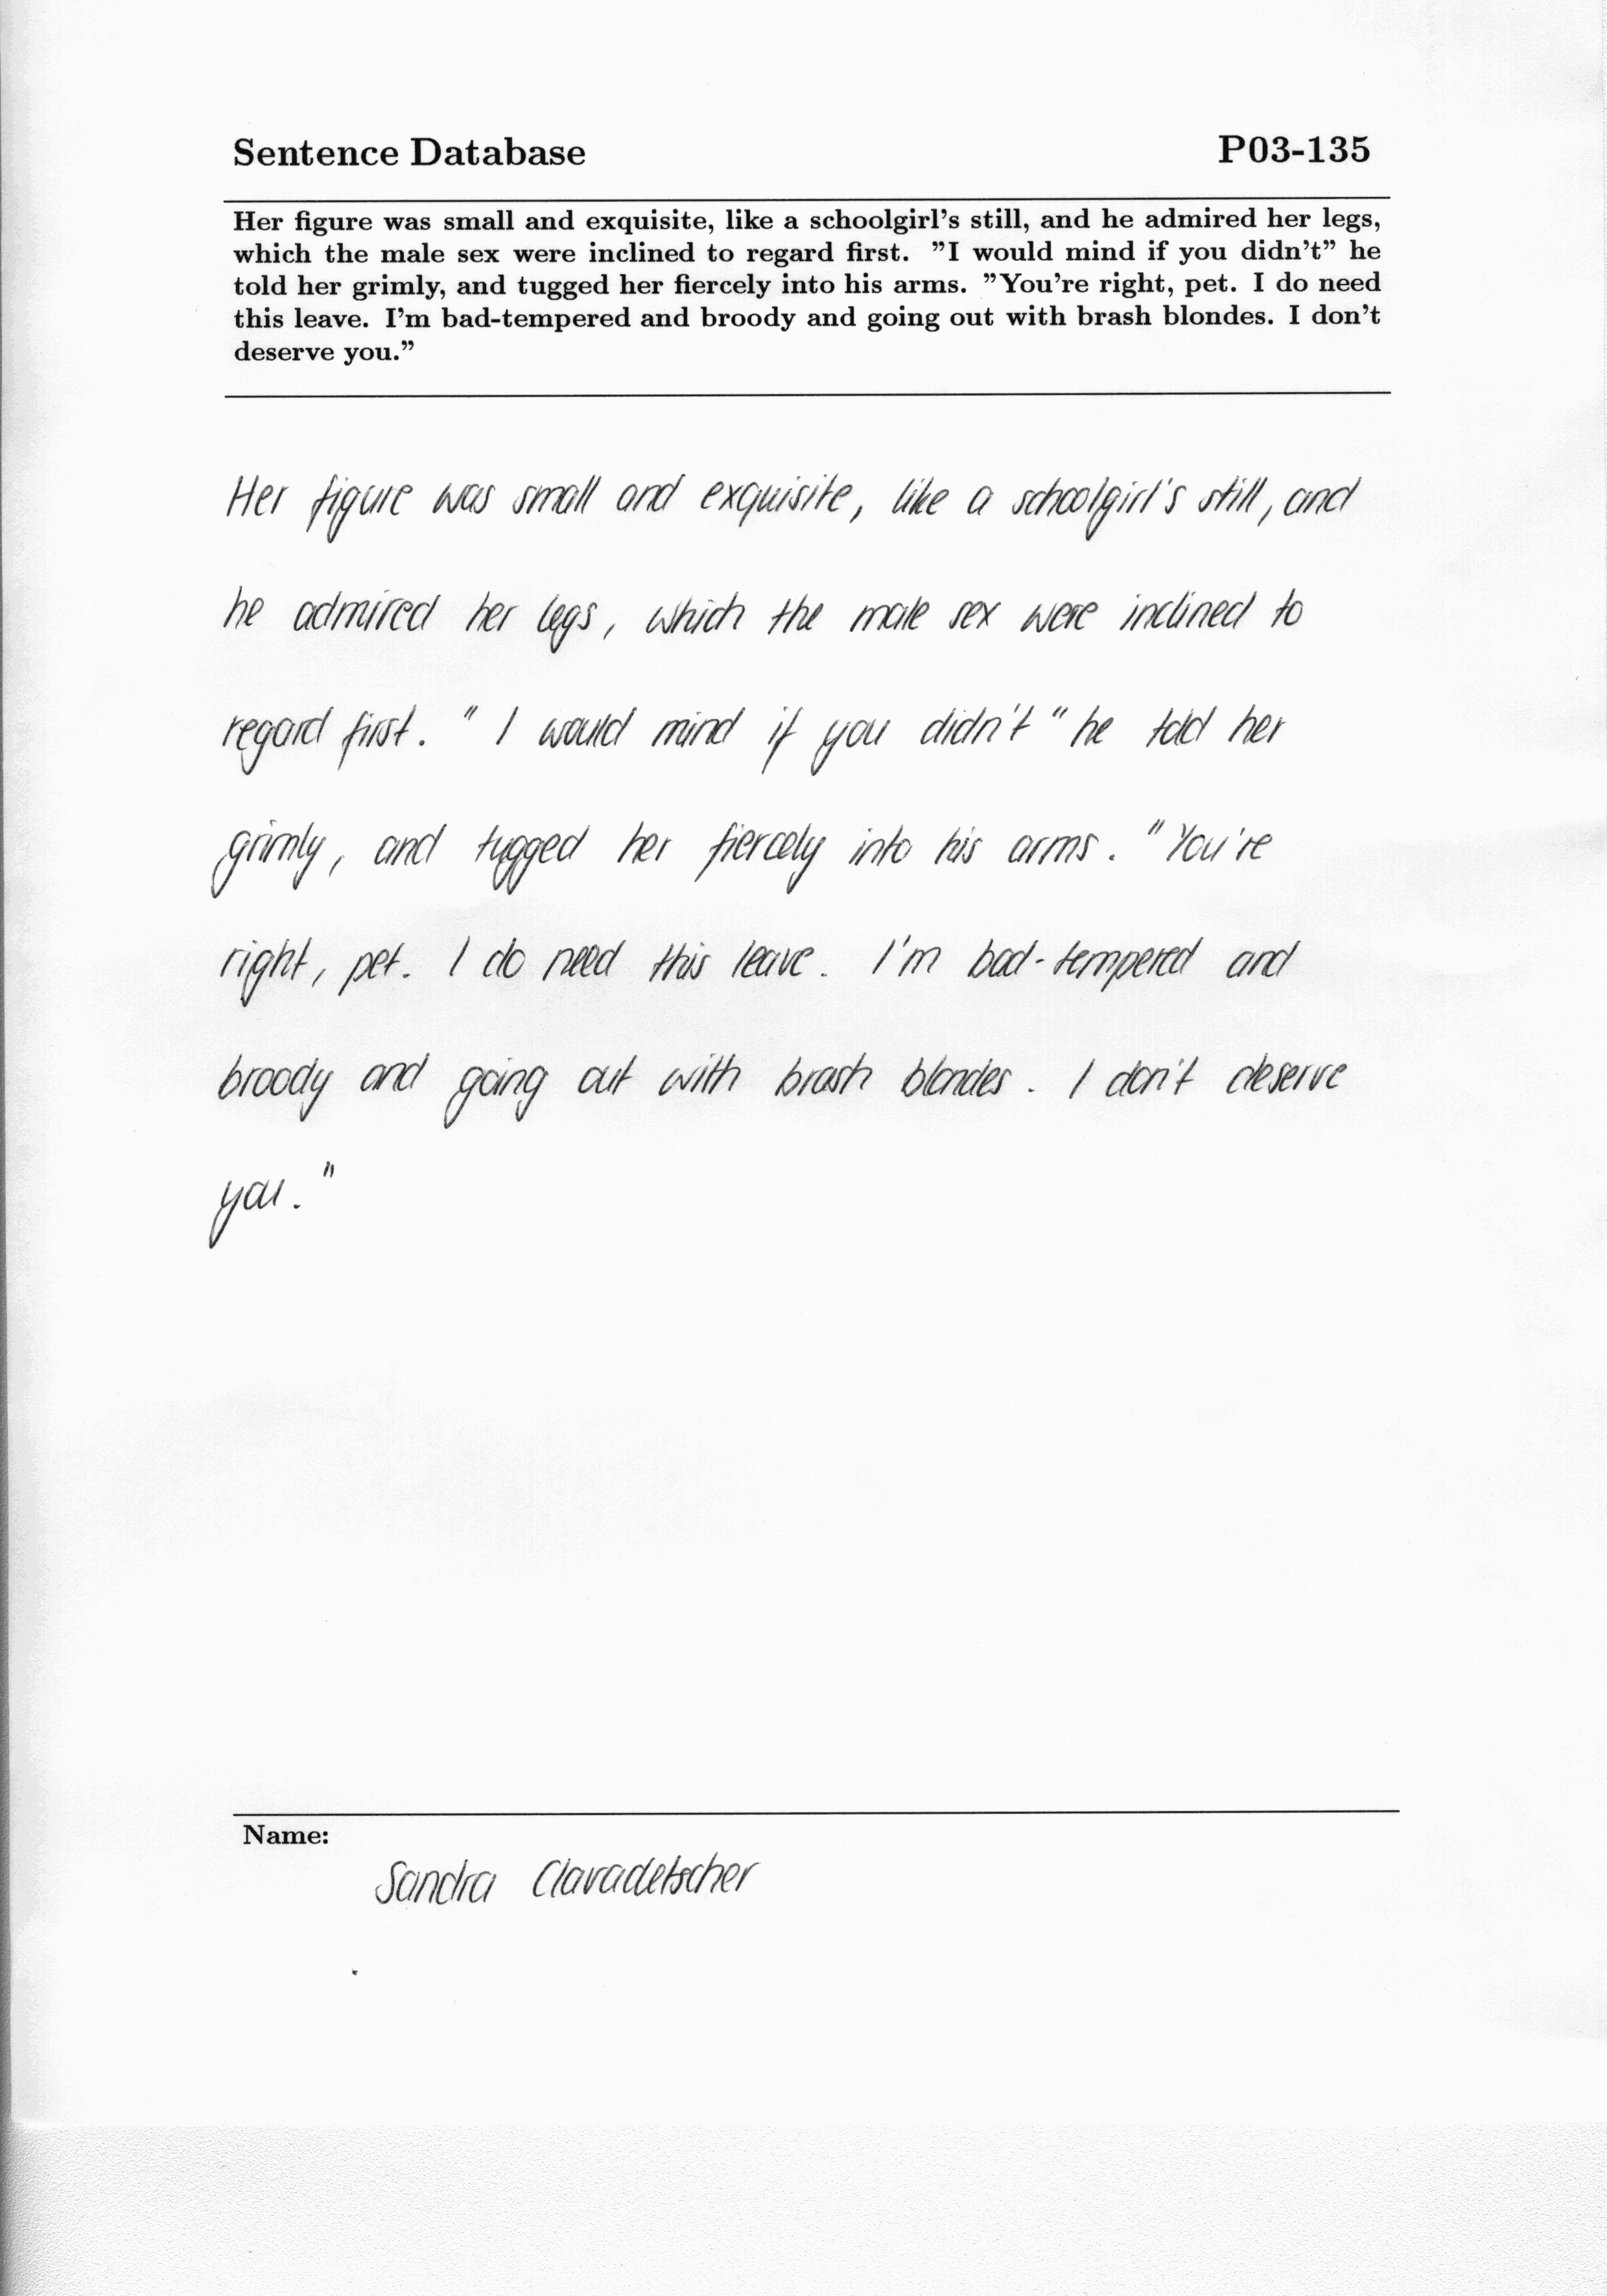 Sentence Database P03-135
Her figure was small and exquisite, like a schoolgirl's still, and he admired her legs,
which the male sex were inclined to regard first. "I would mind if you didn't" he
told her grimly, and tugged her fiercely into his arms. "You're right, pet. I do need
this leave. I'm bad-tempered and broody and going out with brash blondes. I don't
deserve you."
Her figure was small and exquisite, like a schoolgirl's still, and
he admired her legs, which the male sex were inclined to
regard first. " I would mind if you didn't " he told her
grimly, and tugged her fiercely into his arms. " You're
right, pet. I do need this leave. I'm bad-tempered and
broody and going out with brash blondes. I don't deserve
you. "
Name:
Sandra Clavadetscher